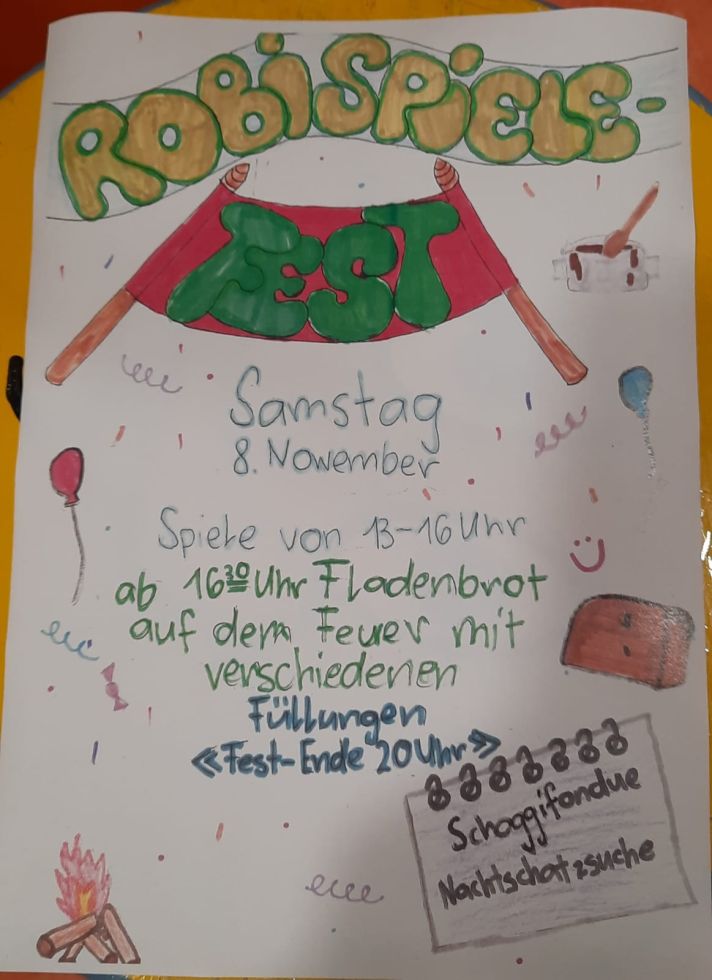 ROBISPIELE-
FEST
Samstag
8. Nowember
Spiele von 13-16 Uhr
ab 16³⁰ Uhr Fladenbrot
auf dem Feuer mit
verschiedenen
Füllungen
«Fest-Ende 20 Uhr»
Schoggifondue
Nachtschatzsuche